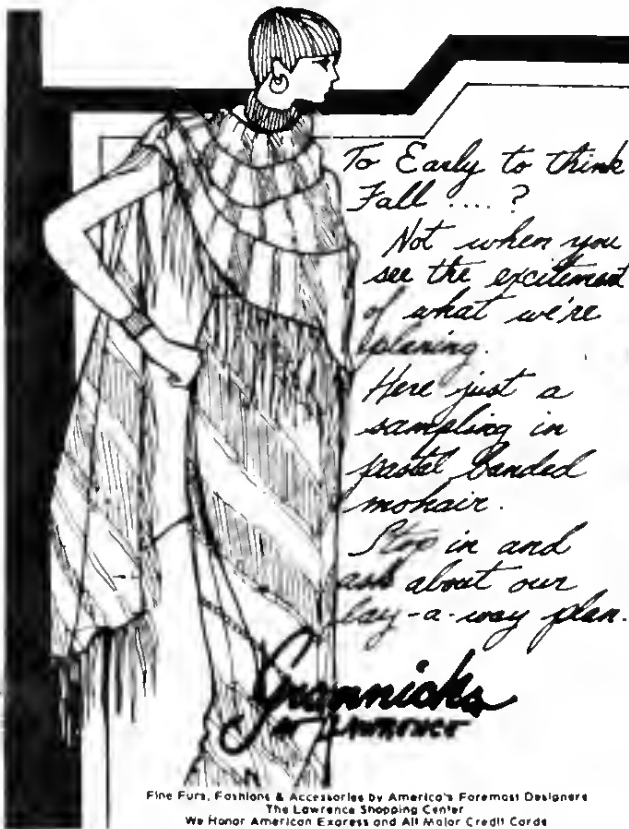 To Early to think
Fall .... ?
Not when you
see the excitement
of what we're
planing.
Here just a
sampling in
pastel banded
mohair.
Stop in and
ask about our
lay-a-way plan.
Grannicks
AT LAWRENCE
Fine Furs, Fashions & Accessories by America's Foremost Designers
The Lawrence Shopping Center
We Honor American Express and All Major Credit Cards